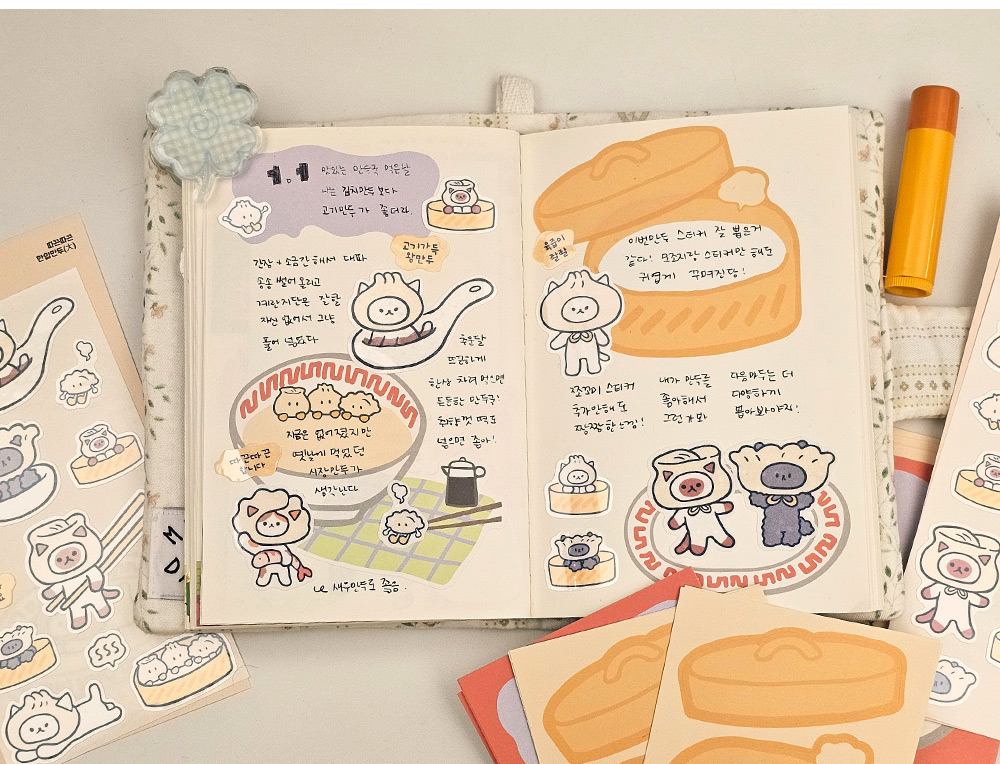 따끈따끈
만입만두(大)
1.1 맛있는 만두국 먹은날
나는 김치만두 보다
고기만두가 좋더라.
고기가득
왕만두
간장 + 소금간 해서 대파
송송 썰어 올리고
계란지단은 잘할
자신 없어서 그냥
풀어 넣었다
추운날
뜨끈하게
한상 차려 먹으면
든든한 만두국!
취향껏 떡도
넣으면 좋아!
지금은 없어졌지만
옛날에 먹었던
시장만두가
생각난다
따끈따끈
합니다
새우만두도 좋음.
육즙이
팡팡
이번만두 스티커 잘 뽑은거
같다! 모조지랑 스티커만 해도
귀엽게 꾸며진당!
쪼꼬미 스티커
국가안해도
짱짱한느낌!
내가 만두를
좋아해서
그런가봐
다음만두는 더
다양하게
뽑아봐야지!